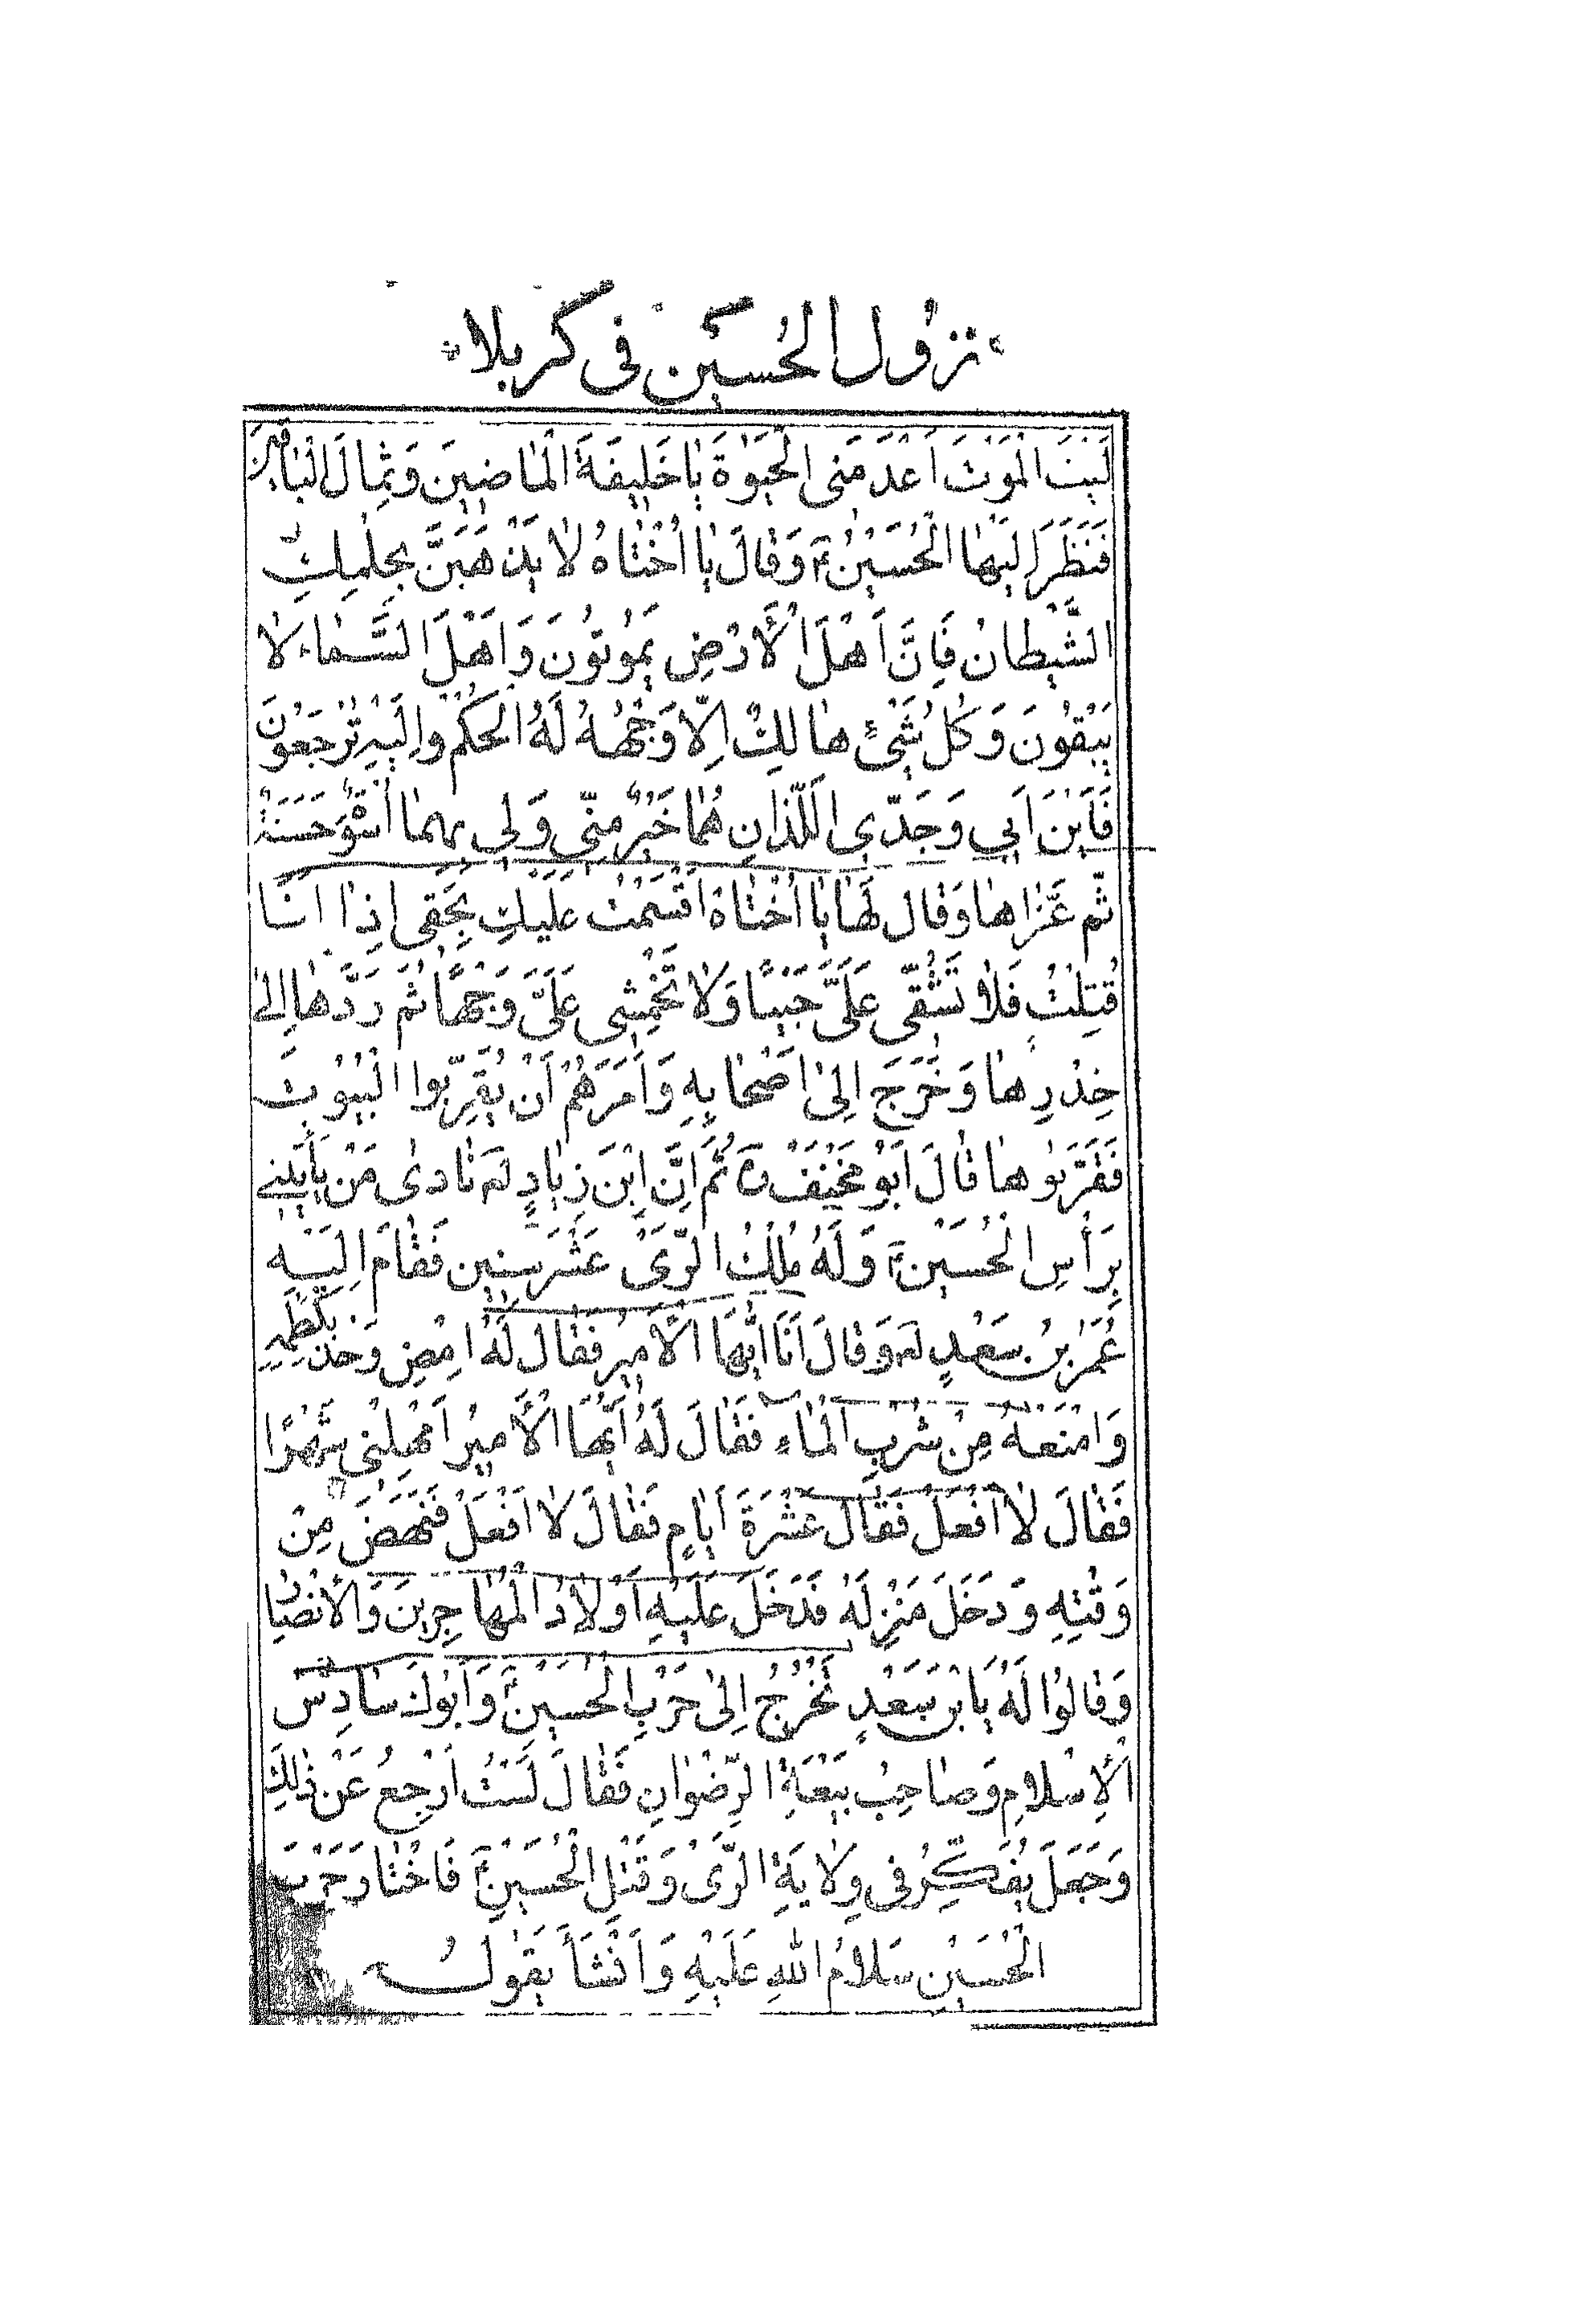 نزول الحسين في كربلا
لَيْتَ الْمَوْتَ اَعْدَمَنى الْحَيٰوةَ يٰا خَليفَةَ الْمٰاضينَ وَثِمٰالَ الْبٰاقين
فَنَظَرَ اِلَيْهٰا الْحُسَيْنُ ع وَقٰالَ يٰا اُخْتٰاهُ لٰا يَذْهَبَنَّ بِحِلْمِكِ
الشَّيْطٰانُ فَاِنَّ اَهْلَ الْأَرْضِ يَمُوتُونَ وَاَهْلَ السَّمٰاءِ لٰا
يَبْقُونَ وَكُلُ شَيْئٍ هٰالِكٌ اِلّا وَجْهُهُ لَهُ الْحُكْمُ واِلَيْهِ تُرْجَعُونَ
فَاَيْنَ اَبي وَجَدّي اللَّذانِ هُمٰا خَيْرٌ مِنّي وَلي بِهِمٰا اُسْوَةٌ حَسَنَةٌ
ثُّم عَّزاهٰا وَقٰال لَهٰا يٰا اُخْتٰاهُ اَقْسَمْتُ عَلَيكِ بِحَقى اِذٰا اَنَا
قُتِلْتُ فَلٰا تَشُقّى عَلَىَّ جَيْبًا وَلٰا تَخْمِشى عَلَىَّ وَجْهًا ثُمَ رَدَّهٰا اِلىٰ
خِدْرِهٰا وَخَرَجَ اِلىٰ اَصْحٰابِهِ وَاَمَرَهُمْ اَنْ يُقَرِّبُوا الْبُيُوتَ
فَقَرَّبُوهٰا قٰالَ اَبُو مِخْنَفْ ره ثُمَ اِنَّ اِبْنَ زِيٰادٍ لَه نٰادىٰ مَنْ يَأْتيني
بِرَأْسِ الْحُسَيْنِ ع وَلَهُ مُلْكُ الرَّىْ عَشْرَ سِنين فَقٰامَ اِلَيْهِ
عُمَرُ بْنُ سَعْدٍ لَه وَقٰالَ اَنَا اَيُّهَا الْأَميرُ فَقٰال لَهُ امْضِ وَخُذْ بِكَظْمِهِ
وَامْنَعْهُ مِنْ شُرْبِ الْمٰاءِ فَقٰالَ لَهُ اَيُّهَا الْأَميرُ اَمْهِلْني شَهْرًا
فَقٰالَ لٰا اَفْعَلُ فَقٰالَ عَشْرَةَ اَيٰامٍ فَقٰالَ لٰا اَفْعَلُ فَنَهَضَ مِنْ
وَقْتِهِ وَدَخَلَ مَنْزِلَهُ فَدَخَلَ عَلَيْهِ اَوْلٰادُ الْمُهٰاجِرينَ وَالْأَنْصٰارِ
وَقٰالوُا لَهُ يَا بْنَ سَعْدٍ تَخْرُجُ اِلىٰ حَرْبِ الْحُسَيْنِ ع وَاَبُوكَ سٰادِسُ
الْاِسْلٰامِ وَصٰاحِبُ بَيْعَةِ الرِّضْوٰانِ فَقٰالَ لَسْتُ اَرْجِعُ عَنْ ذٰلِكَ
وَجَعَلَ يُفَكِّرُ في وِلٰايَةِ الرَّىْ وَقَتْلِ الْحُسَيْنِ ع فَاخْتٰارَ حَرْبَ
الْحُسَيْنِ سَلٰامُ اللهِ عَلَيْهِ وَاَنْشَأَ يَقُولُ